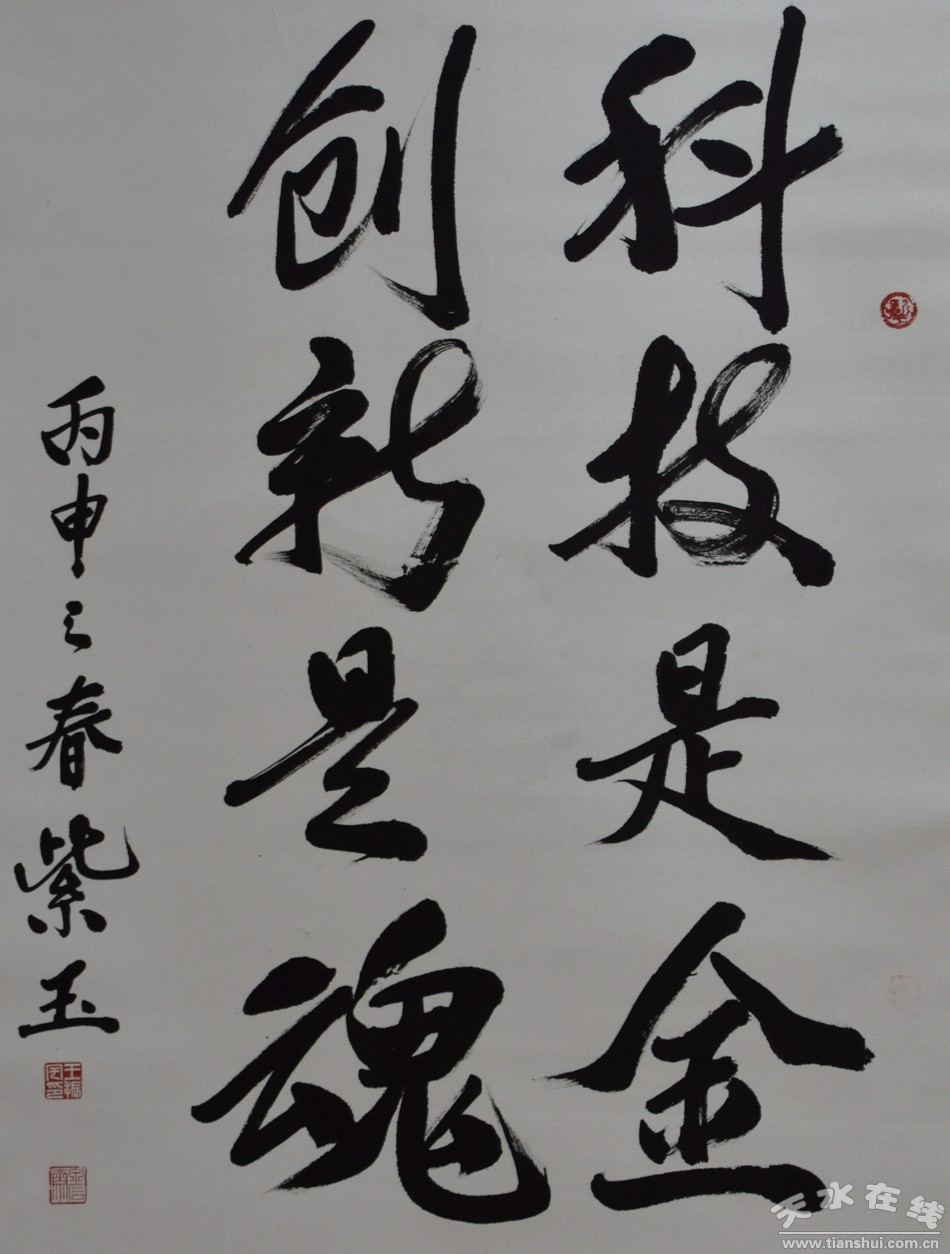 科技是金
创新是魂
丙申之春紫玉
天水在线
www.tianshui.com.cn